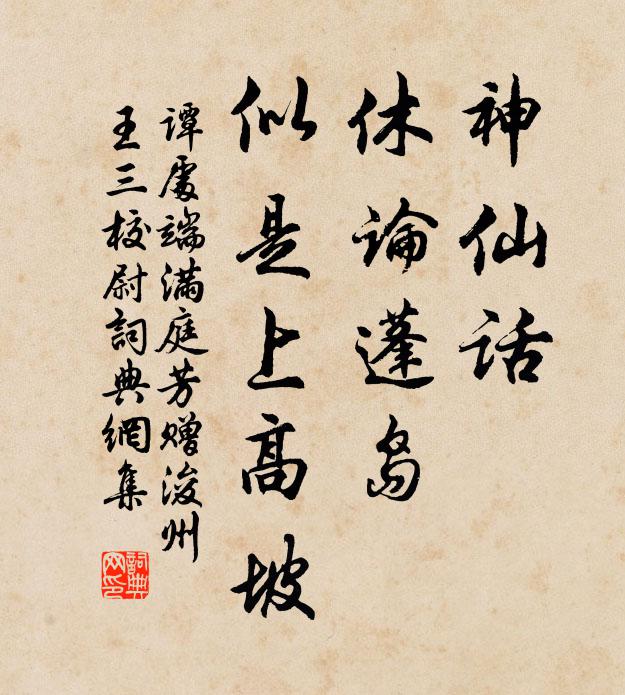 神仙话
休論蓬岛
似是上高坡
谭處端满庭芳赠浚州
王三校尉詞典網集
詞典
网印